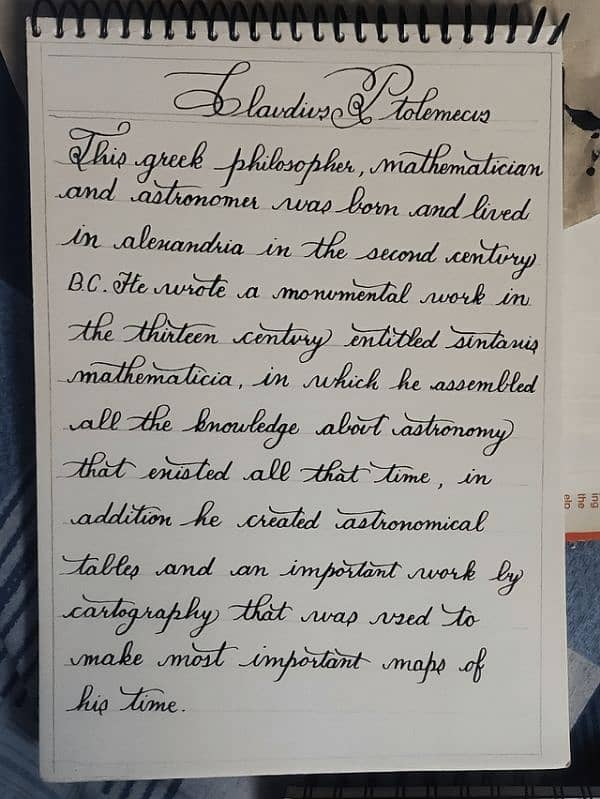 Claudius Ptolemecus
This greek philosopher, mathematician
and astronomer was born and lived
in alexandria in the second century
B.C. He wrote a monumental work in
the thirteen century entitled sintaxis
mathematicia, in which he assembled
all the knowledge about astronomy
that existed all that time, in
addition he created astronomical
tables and an important work by
cartography that was used to
make most important maps of
his time.
ing
the